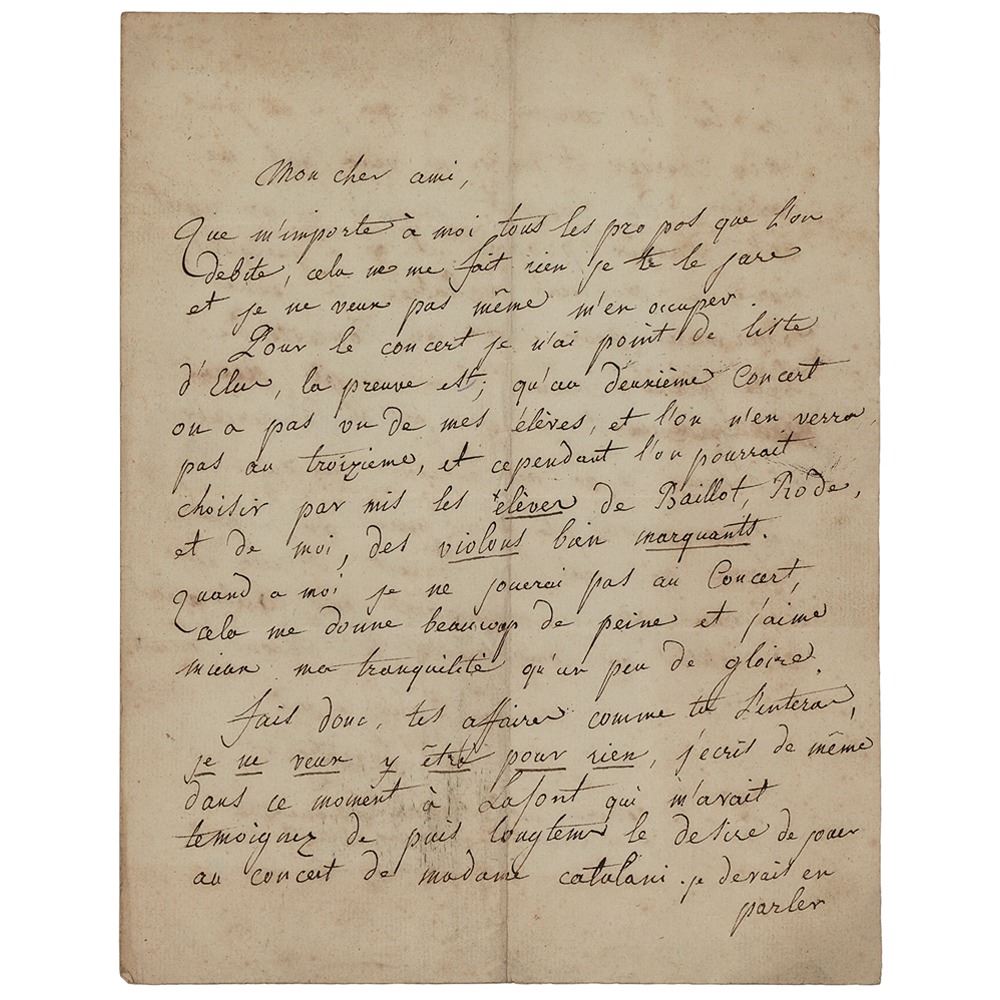 Mon cher ami,
Que m'importe à moi tous les pro pos que l'on
debite, cela ne me fait rien je te le jure
et je ne veux pas même m'en occuper.
Pour le concert je n'ai point de liste
d'Elus, la preuve est; qu'au deuxième Concert
on a pas vu de mes élèves, et l'on n'en verra
pas au troizieme, et cependant l'on pourrait
choisir par mis les élèves de Baillot, Rode,
et de moi, des violons bien marquants.
Quand a moi je ne jouerai pas au Concert,
cela me donne beaucoup de peine et j'aime
mieux ma tranquilité qu'un peu de gloire.
fais donc, tes affaires comme tu l'entera,
je ne veux y être pour rien, j'ecris de même
dans ce moment à Lafont qui m'avait
temoignez de puis longtems le desire de jouer
au concert de madame catalani. je devais en
parler